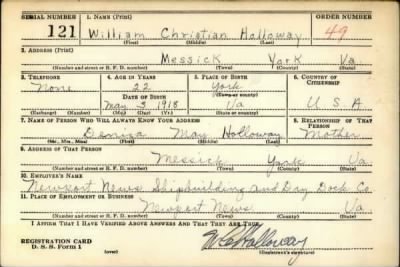 SERIAL NUMBER 1. NAME (Print) ORDER NUMBER
121 William Christian Holloway 49
(First) (Middle) (Last)
2. ADDRESS (Print)
Messick York Va
(Number and street or R. F. D. number) (Town) (County) (State)
3. TELEPHONE 4. AGE IN YEARS 5. PLACE OF BIRTH 6. COUNTRY OF CITIZENSHIP
None 22 York
DATE OF BIRTH (Town or county)
May 3 1918 Va U S A
(Exchange) (Number) (Mo.) (Day) (Yr.) (State or country)
7. NAME OF PERSON WHO WILL ALWAYS KNOW YOUR ADDRESS 8. RELATIONSHIP OF THAT PERSON
May Holloway Mother
(Mr., Mrs., Miss) (First) (Middle) (Last)
9. ADDRESS OF THAT PERSON
Messick York Va
(Number and street or R. F. D. number) (Town) (County) (State)
10. EMPLOYER'S NAME
Newport News Shipbuilding and Day Dock Co.
11. PLACE OF EMPLOYMENT OR BUSINESS
Newport News Va
(Number and street or R. F. D. number) (Town) (County) (State)
I AFFIRM THAT I HAVE VERIFIED ABOVE ANSWERS AND THAT THEY ARE TRUE.
REGISTRATION CARD
D. S. S. Form 1 (over) W C Holloway
(Registrant's signature)